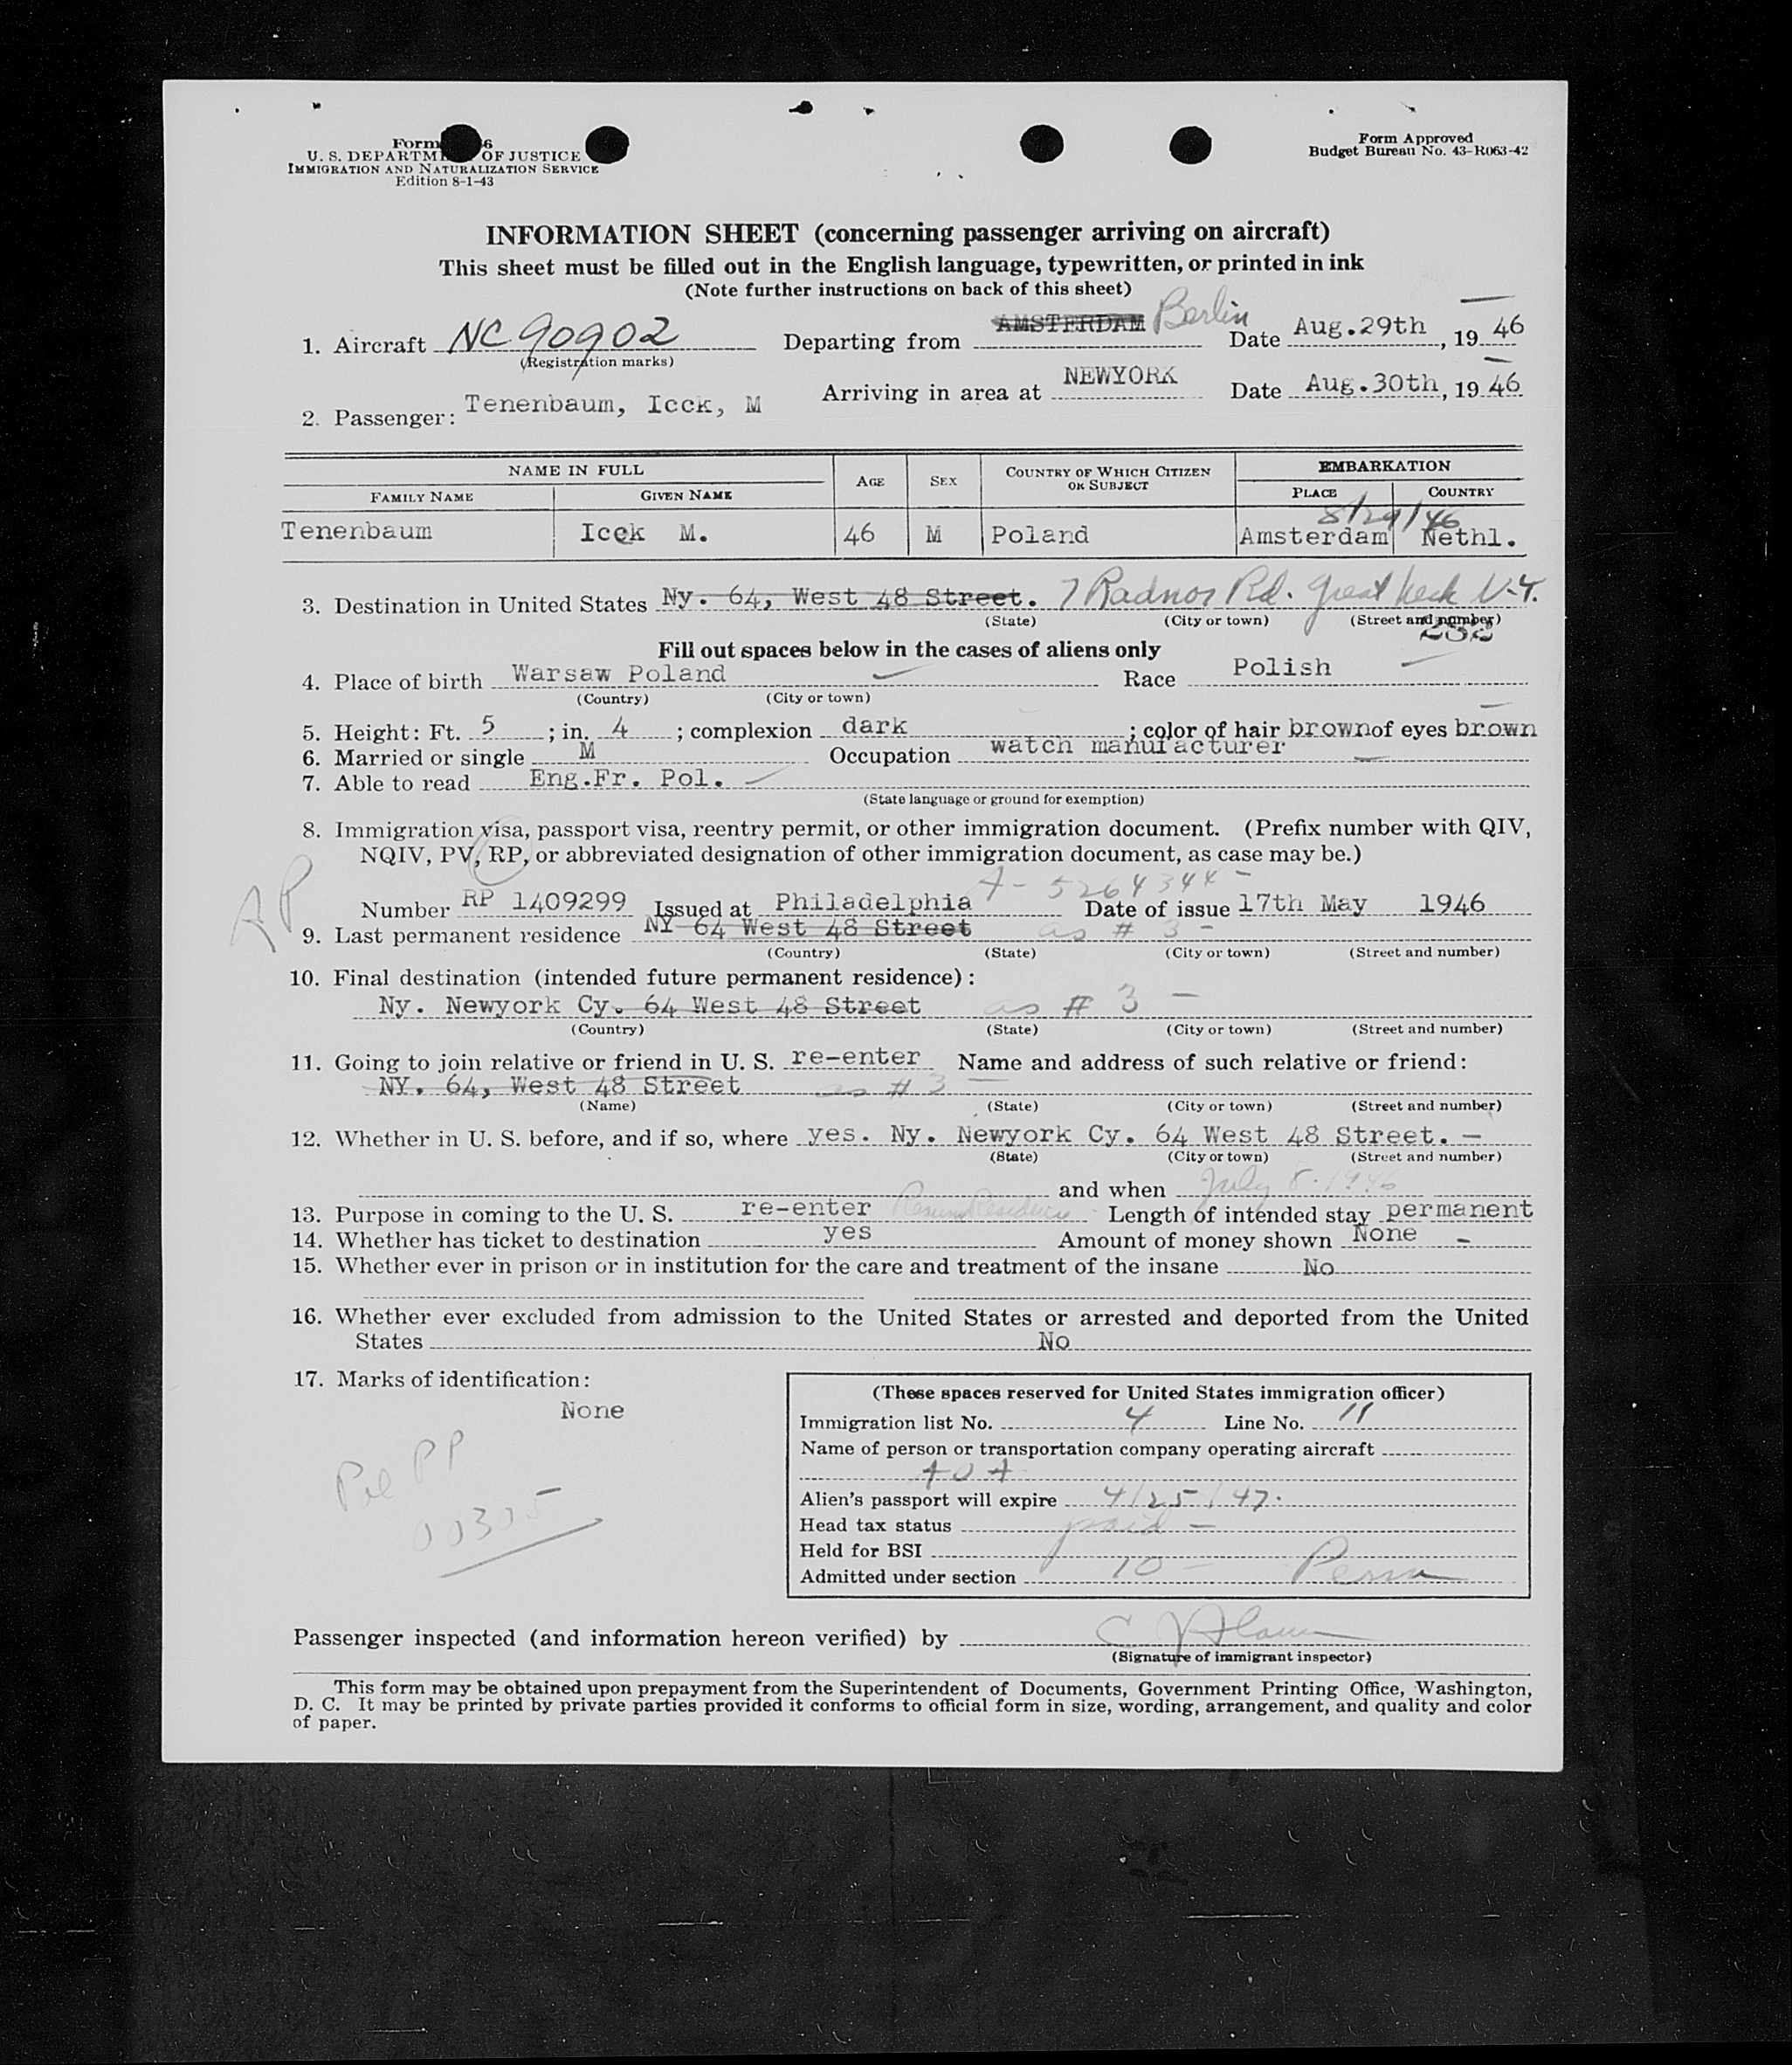 Form 6
U. S. DEPARTM OF JUSTICE
IMMIGRATION AND NATURALIZATION SERVICE
Edition 8-1-43
Form Approved
Budget Bureau No. 43-R063-42
INFORMATION SHEET (concerning passenger arriving on aircraft)
This sheet must be filled out in the English language, typewritten, or printed in ink
(Note further instructions on back of this sheet)
1. Aircraft NC90902 Departing from AMSTERDAM Berlin Date Aug.29th, 19 46
(Registration marks)
2. Passenger: Tenenbaum, Icek, M Arriving in area at NEWYORK Date Aug.30th, 19 46
NAME IN FULL AGE SEX COUNTRY OF WHICH CITIZEN OR SUBJECT EMBARKATION
FAMILY NAME GIVEN NAME PLACE COUNTRY
8/29/46
Tenenbaum Icek M. 46 M Poland Amsterdam Nethl.
3. Destination in United States Ny. 64, West 48 Street. 7 Radnor Rd. Great Neck N.Y.
(State) (City or town) (Street and number)
232
Fill out spaces below in the cases of aliens only
4. Place of birth Warsaw Poland Race Polish
(Country) (City or town)
5. Height: Ft. 5 ; in. 4 ; complexion dark ; color of hair brown of eyes brown
6. Married or single M Occupation watch manufacturer
7. Able to read Eng.Fr. Pol.
(State language or ground for exemption)
8. Immigration visa, passport visa, reentry permit, or other immigration document. (Prefix number with QIV,
NQIV, PV, RP, or abbreviated designation of other immigration document, as case may be.)
RP
A-5264344
Number RP 1409299 Issued at Philadelphia Date of issue 17th May 1946
9. Last permanent residence NY 64 West 48 Street as # 3 -
(Country) (State) (City or town) (Street and number)
10. Final destination (intended future permanent residence):
Ny. Newyork Cy. 64 West 48 Street as # 3 -
(Country) (State) (City or town) (Street and number)
11. Going to join relative or friend in U. S. re-enter Name and address of such relative or friend:
NY. 64, West 48 Street as # 3 -
(Name) (State) (City or town) (Street and number)
12. Whether in U. S. before, and if so, where yes. Ny. Newyork Cy. 64 West 48 Street. -
(State) (City or town) (Street and number)
and when July 8. 1946
13. Purpose in coming to the U. S. re-enter Resume Residence Length of intended stay permanent
14. Whether has ticket to destination yes Amount of money shown None -
15. Whether ever in prison or in institution for the care and treatment of the insane No
16. Whether ever excluded from admission to the United States or arrested and deported from the United
States No
17. Marks of identification:
None
Pol PP
(These spaces reserved for United States immigration officer)
Immigration list No. 4 Line No. 11
Name of person or transportation company operating aircraft
AOA
Alien's passport will expire 4/25/47.
Head tax status paid -
Held for BSI
Admitted under section 10 - Perm
Passenger inspected (and information hereon verified) by
(Signature of immigrant inspector)
This form may be obtained upon prepayment from the Superintendent of Documents, Government Printing Office, Washington,
D. C. It may be printed by private parties provided it conforms to official form in size, wording, arrangement, and quality and color
of paper.